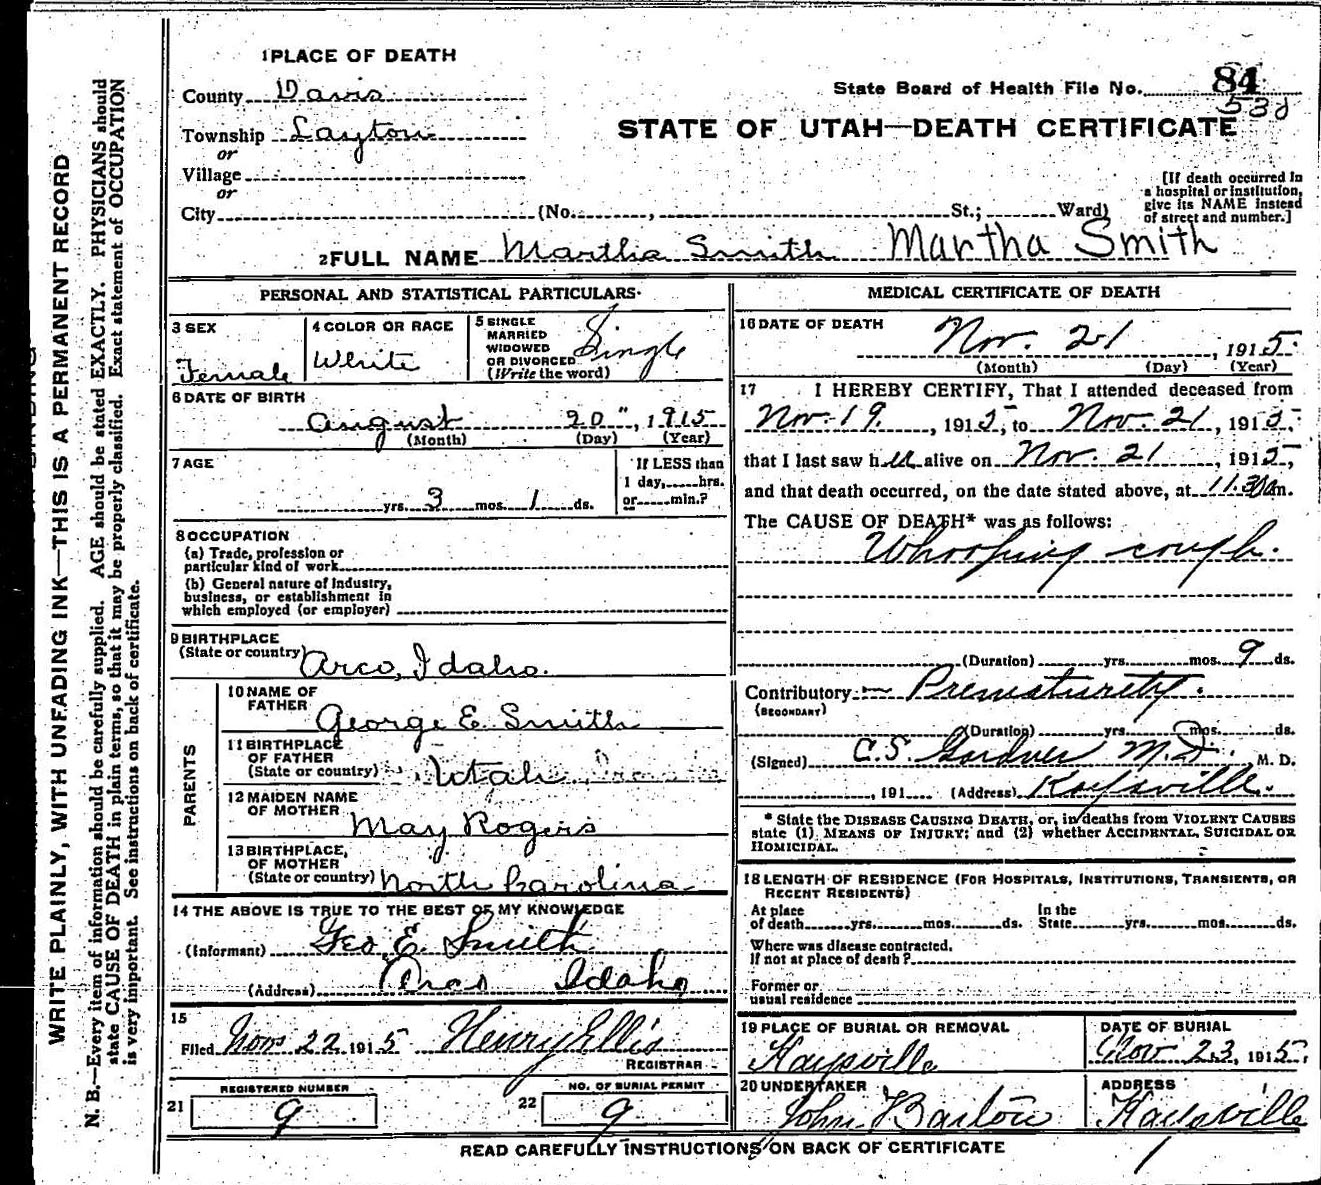 1 PLACE OF DEATH
County Davis
State Board of Health File No. 84
530
Township Layton
STATE OF UTAH—DEATH CERTIFICATE
or
Village
or
City (No. , St.; Ward)
[If death occurred in a hospital or institution, give its NAME instead of street and number.]
2 FULL NAME Martha Smith Martha Smith
PERSONAL AND STATISTICAL PARTICULARS
3 SEX
Female
4 COLOR OR RACE
White
5 SINGLE
MARRIED
WIDOWED
OR DIVORCED
(Write the word)
Single
6 DATE OF BIRTH
August 20", 1915
(Month) (Day) (Year)
7 AGE
yrs. 3 mos. 1 ds.
If LESS than
1 day, hrs.
or min.?
8 OCCUPATION
(a) Trade, profession or
particular kind of work
(b) General nature of industry,
business, or establishment in
which employed (or employer)
9 BIRTHPLACE
(State or country) Arco, Idaho.
PARENTS
10 NAME OF
FATHER
George E Smith
11 BIRTHPLACE
OF FATHER
(State or country) Utah
12 MAIDEN NAME
OF MOTHER
May Rogers
13 BIRTHPLACE,
OF MOTHER
(State or country) North Carolina
14 THE ABOVE IS TRUE TO THE BEST OF MY KNOWLEDGE
(Informant) Geo. E. Smith
(Address) Arco Idaho
15
Filed Nov 22 1915 Henry Ellis
REGISTRAR
REGISTERED NUMBER
21 9
NO. OF BURIAL PERMIT
22 9
MEDICAL CERTIFICATE OF DEATH
16 DATE OF DEATH
Nov. 21, 1915.
(Month) (Day) (Year)
17 I HEREBY CERTIFY, That I attended deceased from
Nov. 19, 1915, to Nov. 21, 1915,
that I last saw her alive on Nov. 21, 1915,
and that death occurred, on the date stated above, at 11.30 a m.
The CAUSE OF DEATH* was as follows:
Whooping cough.
(Duration) yrs. mos. 9 ds.
Contributory Prematurity.
(SECONDARY)
(Duration) yrs. mos. ds.
(Signed) C.S. Gardner M.D. M. D.
, 191 (Address) Kaysville.
* State the DISEASE CAUSING DEATH, or, in deaths from VIOLENT CAUSES
state (1) MEANS OF INJURY; and (2) whether ACCIDENTAL, SUICIDAL OR
HOMICIDAL.
18 LENGTH OF RESIDENCE (FOR HOSPITALS, INSTITUTIONS, TRANSIENTS, OR
RECENT RESIDENTS)
At place
of death yrs. mos. ds.
In the
State yrs. mos. ds.
Where was disease contracted.
If not at place of death?
Former or
usual residence
19 PLACE OF BURIAL OR REMOVAL
Kaysville
DATE OF BURIAL
Nov 23, 1915,
20 UNDERTAKER
John Barlow
ADDRESS
Kaysville
READ CAREFULLY INSTRUCTIONS ON BACK OF CERTIFICATE
WRITE PLAINLY, WITH UNFADING INK—THIS IS A PERMANENT RECORD
N. B.—Every item of information should be carefully supplied. AGE should be stated EXACTLY. PHYSICIANS should
state CAUSE OF DEATH in plain terms, so that it may be properly classified. Exact statement of OCCUPATION
is very important. See instructions on back of certificate.